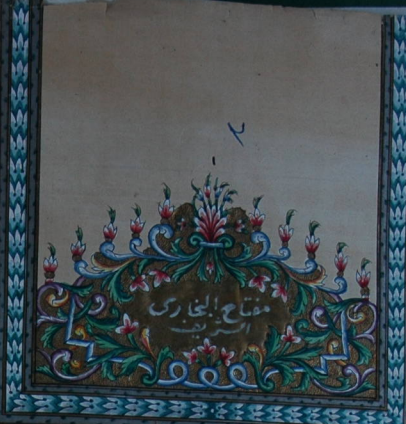 ٢
مفتاح البخارى
الشريف